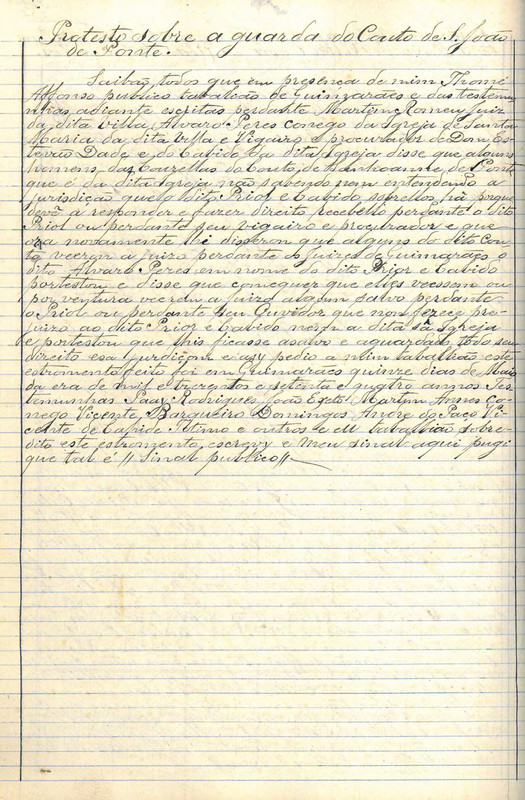 Protesto sobre a guarda do Couto de S. João
de Ponte.
Saibão todos que em presença de mim Thomé
Affonso publico tabalião de Guimarães e das testemu
nhas adiante escritas perdante Martim Romeu Juiz
da dita villa Alvaro Peres conego da Igreja de Santa
Maria da dita Villa e Vigairo e procurador de Dom Es-
tevão Dade e do Cabido da dita Igreja disse que alguns
homens das Courellas do Couto de Sanhoanne de Ponte
que é da dita Igreja não sabendo nem entendendo a
jurisdição que o dito Priol e Cabido sobrellos há porque
devẽ a responder e fazer direito recebello perdante o dito
Priol ou perdante seu vigairo e procurador e que
ora novamente lhi disserom que alguns do dito Cou
to veerom a juizo perdante os juizes de Guimarães o
dito Alvaro Peres em nome do dito Prior e Cabido
portestou e disse que comequer que elles veessem ou
por ventura veerem a juizo algum salvo perdante
o Priol ou perdante seu Ouvidor que non fezece pre-
juizo ao dito Prior e Cabido nem a dita sa Igreja
e portestou que lhis ficasse asalvo e aguardado todo seu
direito e sa jurdiçom e asy pedio a mim tabalião este
estromento feito foi em Guimarães quinze dias de Maio
da era de mil e trezentos e setenta e quatro annos Tes-
temunhas Paay Rodrigues João Martim Annes Co-
nego Vicente Barqueiro Domingos Andre do Paço Vi-
cente de e outros e eu tabalião sobre-
dito este estromento escrevy e meu sinal aqui pugi
que tal é // Sinal publico //